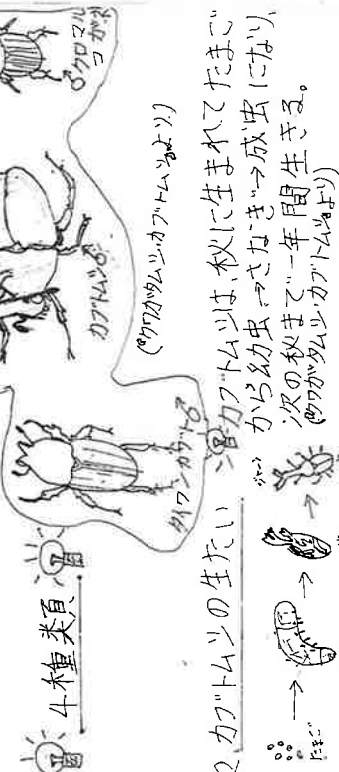 4種類
クロマル
コガネ
♂
カブトムシ♂
タイワンカブト♂
(クワガタムシ・カブトムシより)
2、カブトムシの生たい
カブトムシは、秋に生まれてたまご
から幼虫→さなぎ→成虫になり、
次の秋まで一年間生きる。
(クワガタムシ・カブトムシより)
たまご